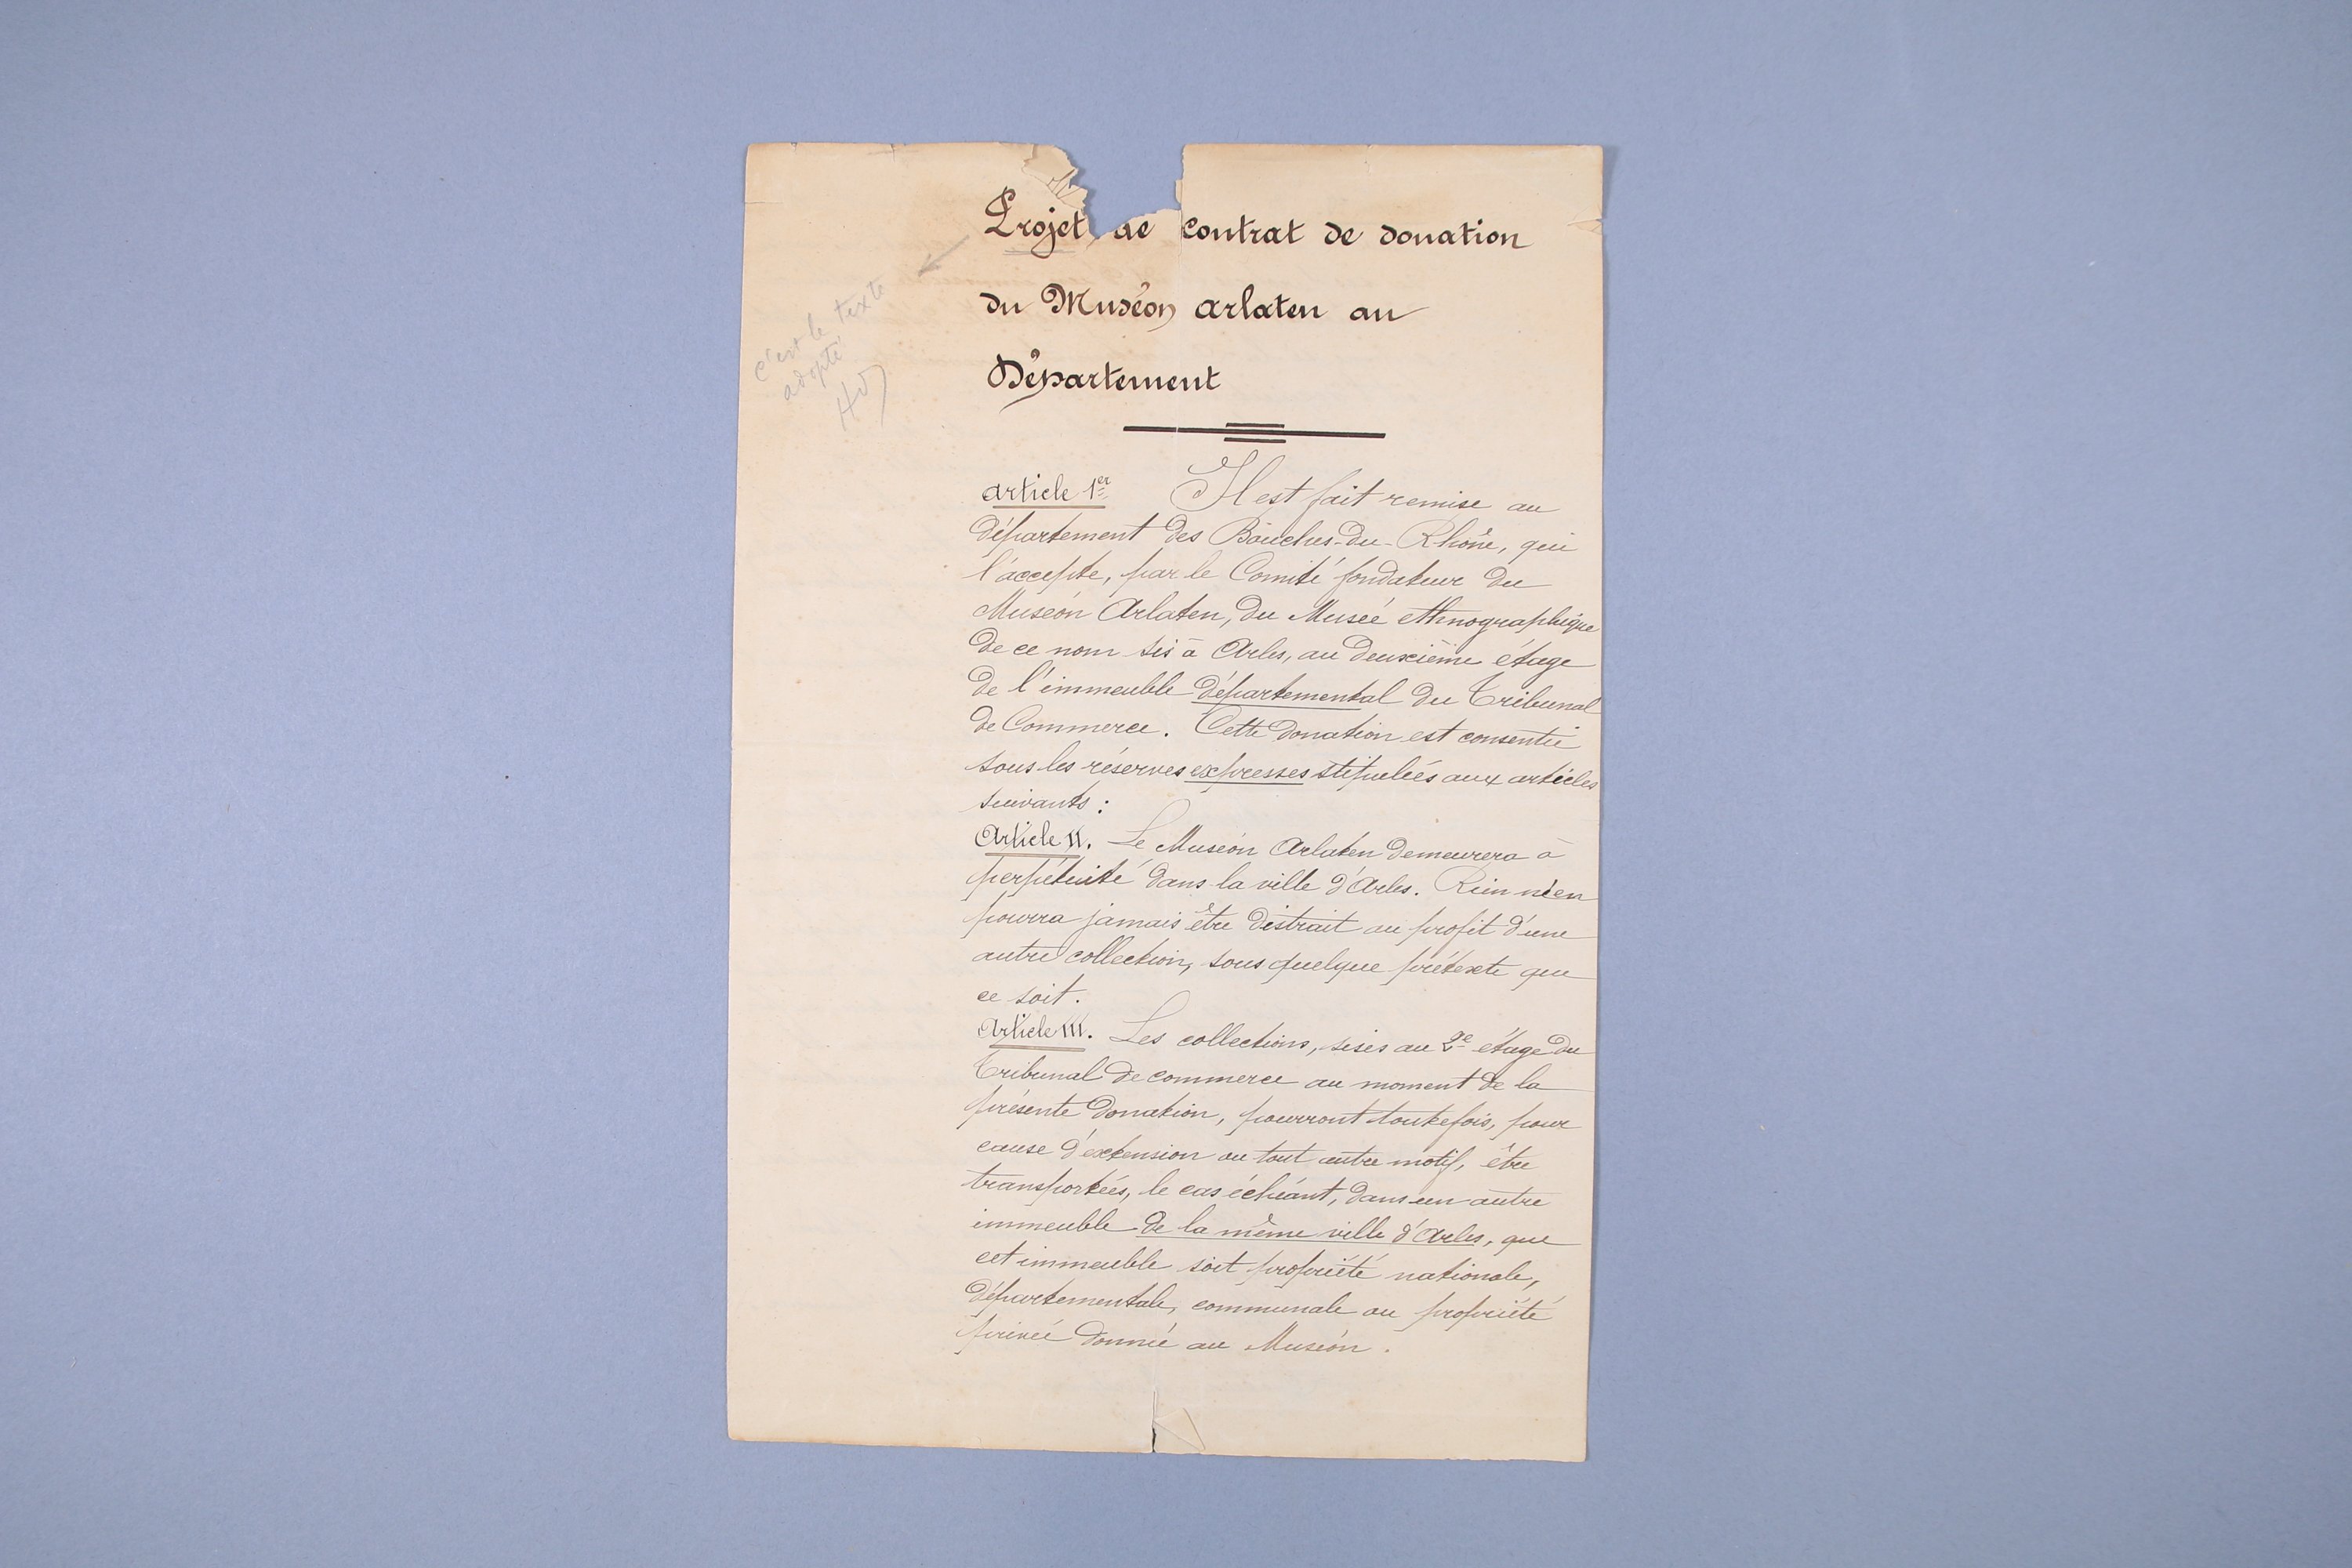 Projet de contrat de donation
du Muséon arlaten au
Département
c'est le texte
adopté
article 1er Il est fait remise au
département des Bouches-du-Rhône, qui
l'accepte, par le Comité fondateur du
Muséon Arlaten, du Musée ethnographique
de ce nom sis à Arles, au deuxième étage
de l'immeuble départemental du Tribunal
de Commerce. Cette donation est consentie
sous les réserves expresses stipulées aux articles
suivants :
Article II. Le Muséon Arlaten demeurera à
perpétuité dans la ville d'Arles. Rien n'en
pourra jamais être distrait au profit d'une
autre collection, sous quelque prétexte que
ce soit.
Article III. Les collections, sises au 2e étage du
Tribunal de commerce au moment de la
présente donation, pourront toutefois, pour
cause d'extension ou tout autre motif, être
transportées, le cas échéant, dans un autre
immeuble de la même ville d'Arles, que
cet immeuble soit propriété nationale,
départementale, communale ou propriété
privée donnée au Muséon.